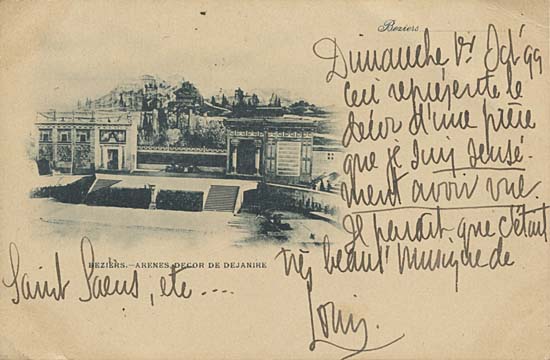 Beziers
Dimanche 1er Oct 99
Ceci représente le
décor d'une pièce
que je suis sensé-
ment avoir vue.
Il paraît que c'était
très beau! Musique de
Saint Saëns, etc ....
Louis.
BEZIERS.—ARENES DECOR DE DEJANIRE